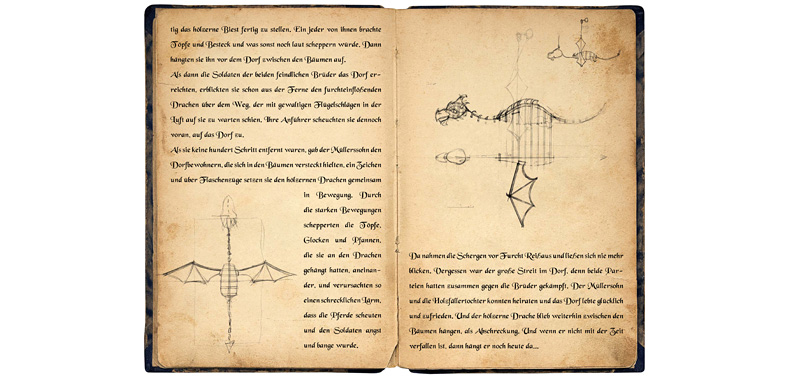 tig das hölzerne Biest fertig zu stellen. Ein jeder von ihnen brachte
Töpfe und Besteck und was sonst noch laut scheppern würde. Dann
hängten sie ihn vor dem Dorf zwischen den Bäumen auf.
Als dann die Soldaten der beiden feindlichen Brüder das Dorf er-
reichten, erblickten sie schon aus der Ferne den furchteinflößenden
Drachen über dem Weg, der mit gewaltigen Flügelschlägen in der
Luft auf sie zu warten schien. Ihre Anführer scheuchten sie dennoch
voran, auf das Dorf zu.
Als sie keine hundert Schritt entfernt waren, gab der Müllerssohn den
Dorfbewohnern, die sich in den Bäumen versteckt hielten, ein Zeichen
und über Flaschenzüge setzen sie den hölzernen Drachen gemeinsam
in Bewegung. Durch
die starken Bewegungen
schepperten die Töpfe,
Glocken und Pfannen,
die sie an den Drachen
gehängt hatten, aneinan-
der, und verursachten so
einen schrecklichen Lärm,
dass die Pferde scheuten
und den Soldaten angst
und bange wurde.
Da nahmen die Schergen vor Furcht Reißaus und ließen sich nie mehr
blicken. Vergessen war der große Streit im Dorf, denn beide Par-
teien hatten zusammen gegen die Brüder gekämpft. Der Müllersohn
und die Holzfällertochter konnten heiraten und das Dorf lebte glücklich
und zufrieden. Und der hölzerne Drache blieb weiterhin zwischen den
Bäumen hängen, als Abschreckung. Und wenn er nicht mit der Zeit
verfallen ist, dann hängt er noch heute da...